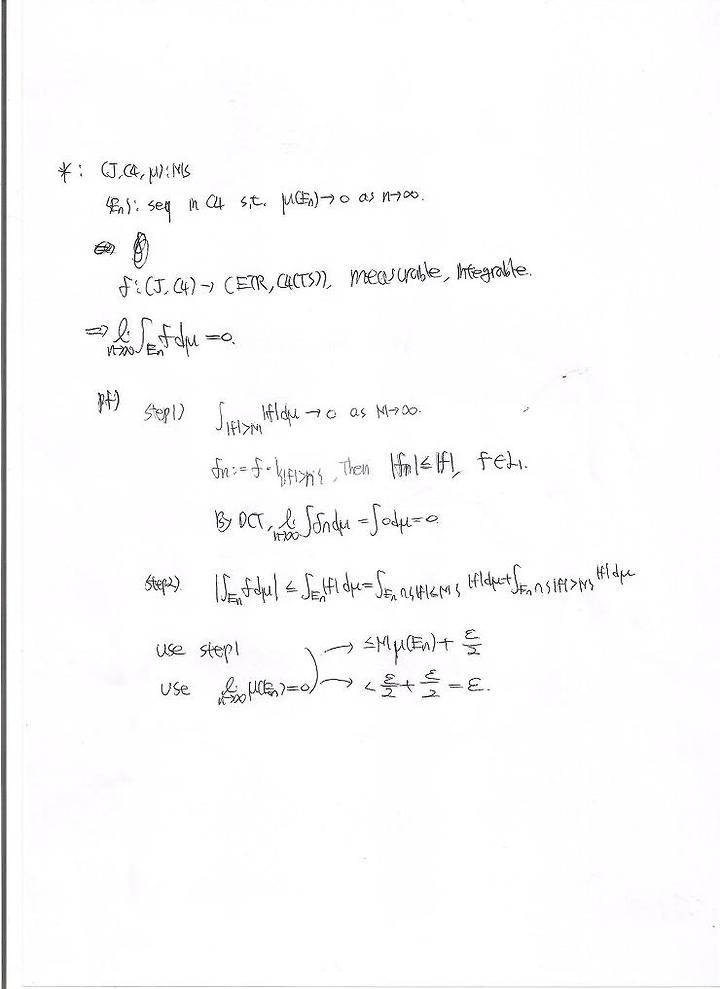 *: (J, C4, μ): MS
{En}: seq in C4 s.t. μ(En)→0 as n→∞.
f: (J, C4) → (ETR, C4(TS)), measurable, integrable.
⇒ li n→∞ ∫En f dμ = 0.
pf) step1) ∫|f|>M |f|dμ → 0 as M→∞.
fn := f · 1{|f|>n}, Then |fn| ≤ |f|, f∈L1.
By DCT, li n→∞ ∫fn dμ = ∫0dμ = 0
step2) |∫En f dμ| ≤ ∫En |f| dμ = ∫En∩{|f|≤M} |f|dμ + ∫En∩{|f|>M} |f| dμ
use step1 → ≤ M μ(En) + ε/2
use li n→∞ μ(En) = 0 → < ε/2 + ε/2 = ε.